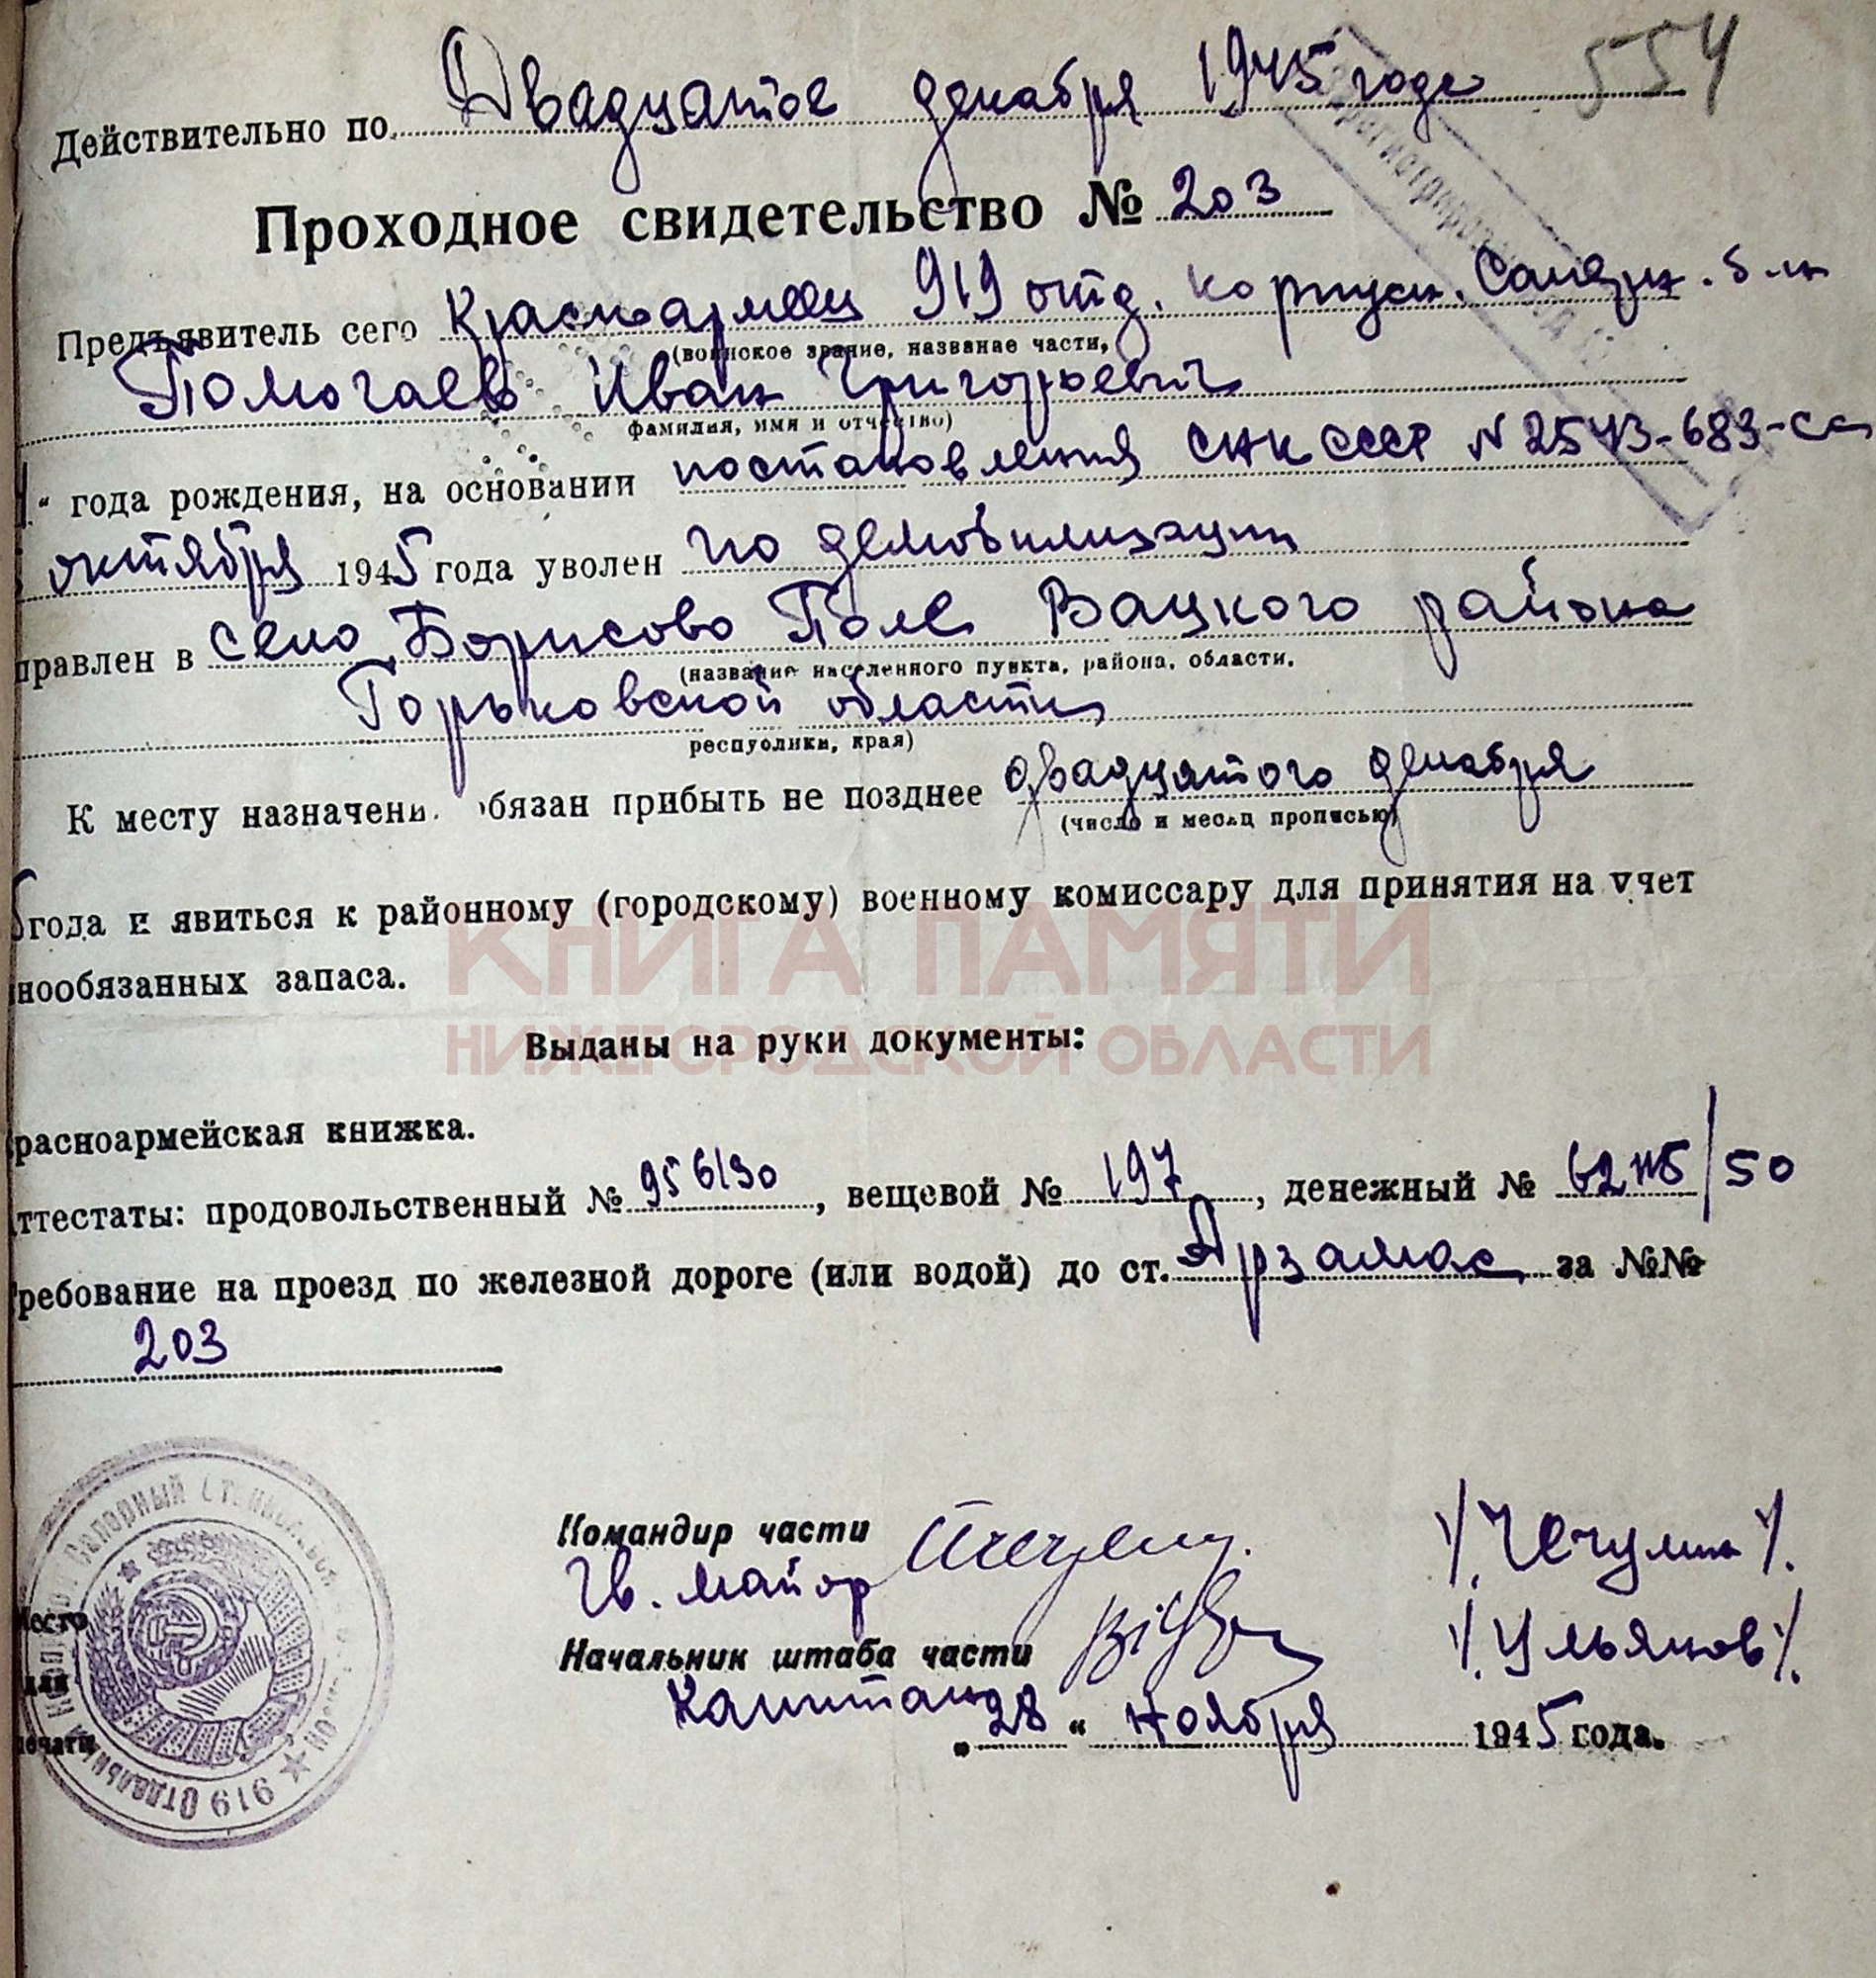 554
Действительно по Двадцатое декабря 1945 года
Проходное свидетельство № 203
Предъявитель сего Красноармеец 919 отд. корпусн.
(воинское звание, название части,
Помогаев Иван Григорьевич
фамилия, имя и отчество)
“ года рождения, на основании постановления СНК СССР N 2543-683-сс
октября 1945 года уволен по демобилизации
правлен в село Борисово Поле Вацкого района
(название населенного пункта, района, области,
Горьковской области
республики, края)
К месту назначени обязан прибыть не позднее двадцатого декабря
(число и месяц прописью)
5 года и явиться к районному (городскому) военному комиссару для принятия на учет
нообязанных запаса.
КНИГА ПАМЯТИ
НИЖЕГОРОДСКОЙ ОБЛАСТИ
Выданы на руки документы:
расноармейская книжка.
ттестаты: продовольственный № 956130, вещевой № 197, денежный №
ребование на проезд по железной дороге (или водой) до ст. Арзамас за №№
203
Командир части
Гв. майор /Чечулин/.
Начальник штаба части /Ульянов/.
Капитан
„ 28 “ Ноября 1945 года.
Место
для
печати
919 Отдельный